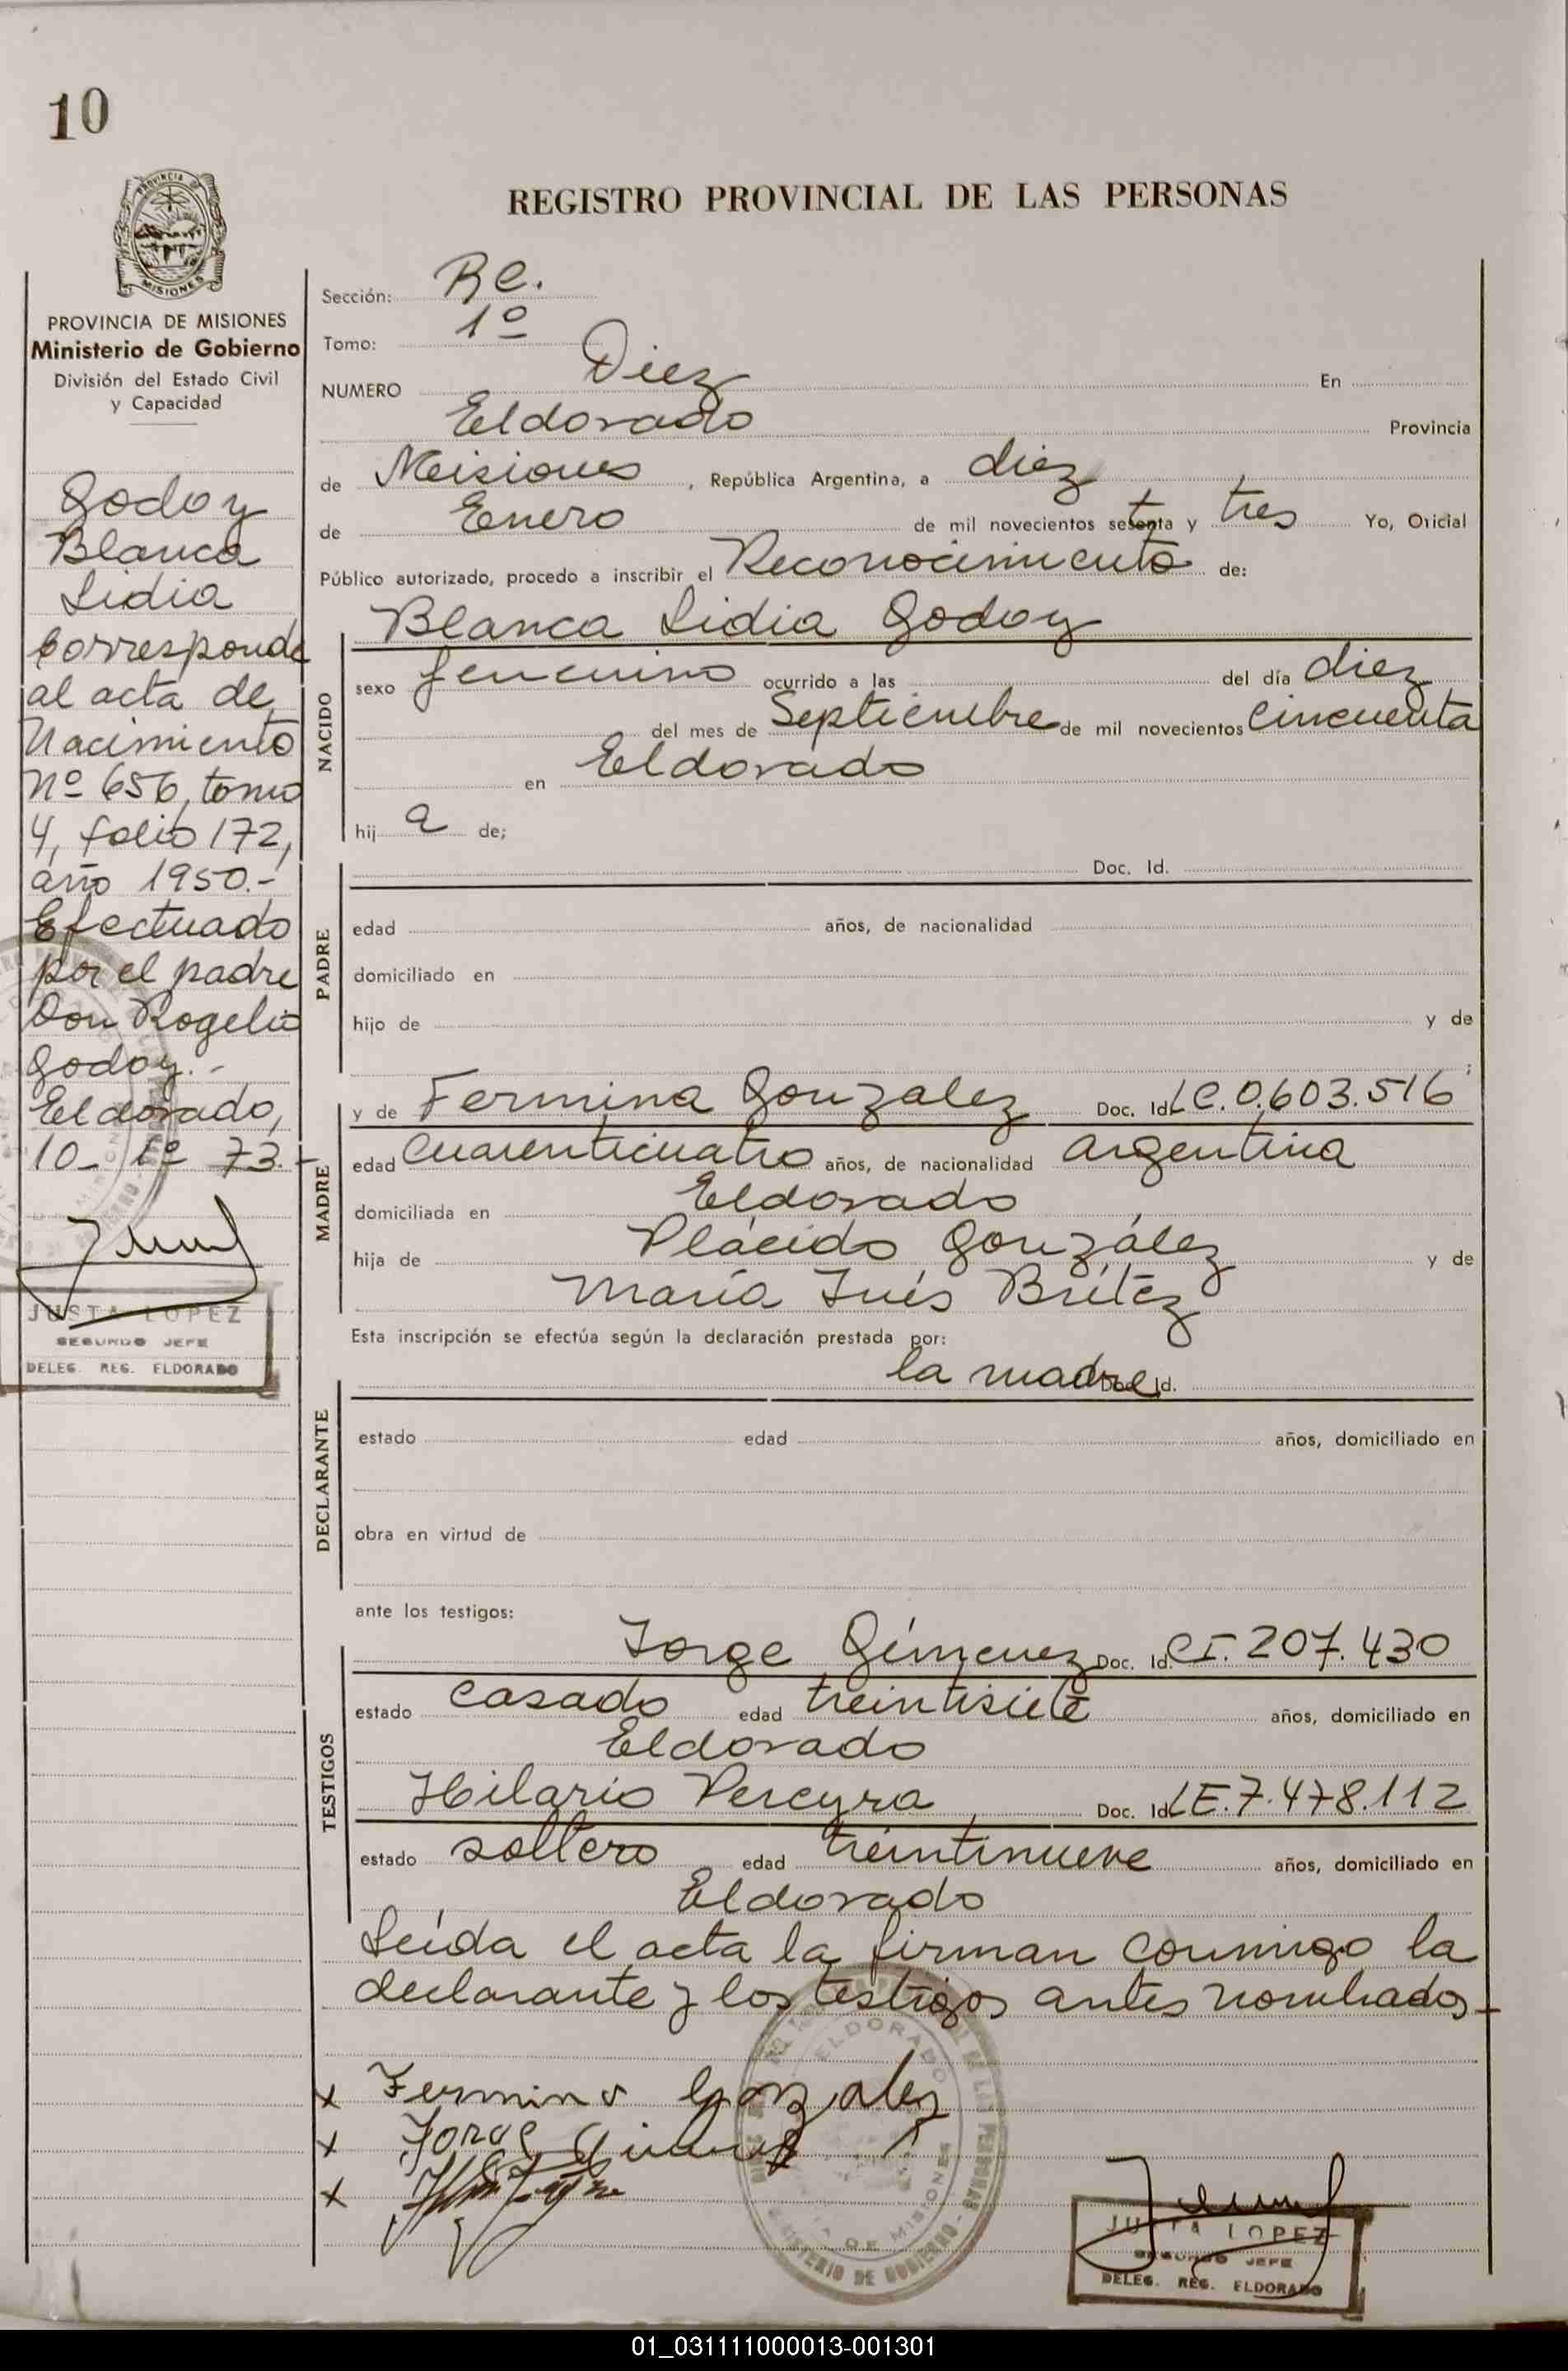 10
PROVINCIA DE MISIONES
MISIONES
PROVINCIA DE MISIONES
Ministerio de Gobierno
División del Estado Civil
y Capacidad
Godoy
Blanca
Lidia
Corresponde
al acta de
Nacimiento
Nº 656, tomo
4, folio 172,
año 1950.-
Efectuado
por el padre
Don Rogelio
Godoy.-
Eldorado,
10- 1º 73.-
JUSTA LOPEZ
SEGUNDO JEFE
DELEG. REG. ELDORADO
REGISTRO PROVINCIAL DE LAS PERSONAS
Sección: Re.
Tomo: 1º
NUMERO Diez En
Eldorado Provincia
de Misiones, República Argentina, a diez
de Enero de mil novecientos setenta y tres Yo, Oficial
Público autorizado, procedo a inscribir el Reconocimiento de:
Blanca Lidia Godoy
NACIDO
sexo femenino ocurrido a las del día diez
del mes de Septiembre de mil novecientos cincuenta
en Eldorado
hij a de;
PADRE
Doc. Id.
edad años, de nacionalidad
domiciliado en
hijo de y de
;
MADRE
y de Fermina Gonzalez Doc. Id. LC. 0.603.516
edad cuarenticuatro años, de nacionalidad argentina
domiciliada en Eldorado
hija de Plácido González y de
María Inés Brítez
Esta inscripción se efectúa según la declaración prestada por:
DECLARANTE
la madre Doc. Id.
estado edad años, domiciliado en
obra en virtud de
ante los testigos:
TESTIGOS
Jorge Gimenez Doc. Id. CI. 207.430
estado casado edad treintisiete años, domiciliado en
Eldorado
Hilario Pereyra Doc. Id. LE. 7.478.112
estado soltero edad treintinueve años, domiciliado en
Eldorado
Leída el acta la firman conmigo la
declarante y los testigos antes nombrados-
x Fermina Gonzalez
x Jorge Gimenez
x
ELDORADO
MINISTERIO DE GOBIERNO - DE LAS PERSONAS
DE MISIONES
JUSTA LOPEZ
SEGUNDO JEFE
DELEG. REG. ELDORADO
01_031111000013-001301